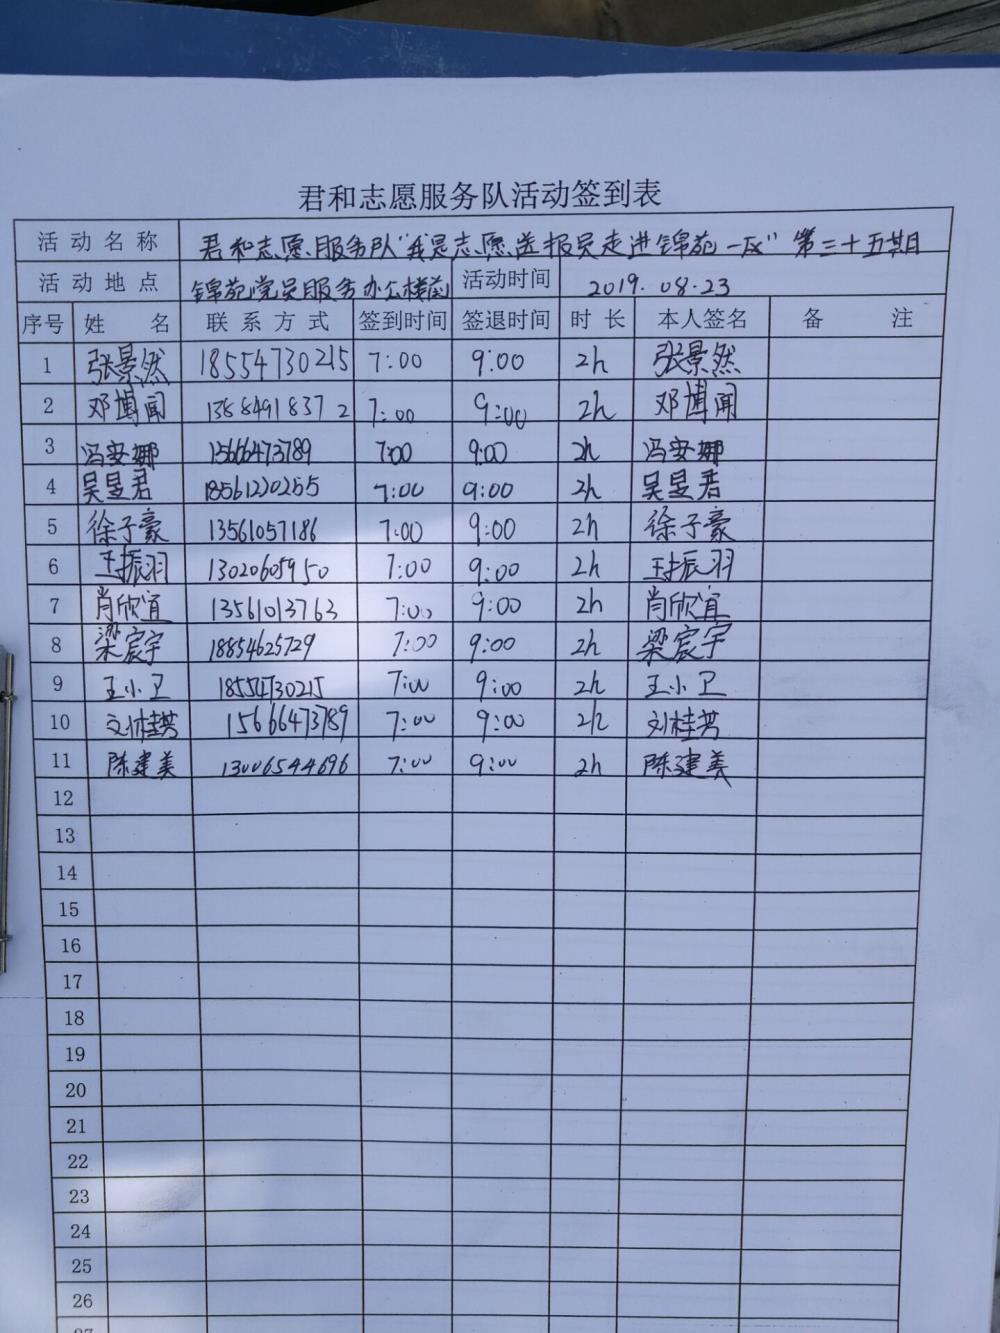 君和志愿服务队活动签到表
活动名称 君和志愿服务队"我是志愿送报员走进锦苑一区"第三十五期
活动地点 锦苑党员服务办公楼前 活动时间 2019.08.23
序号 姓 名 联系方式 签到时间 签退时间 时长 本人签名 备 注
1 张景然 18554730215 7:00 9:00 2h 张景然
2 邓博闻 13884918372 7:00 9:00 2h 邓博闻
3 冯安娜 15666473789 7:00 9:00 2h 冯安娜
4 吴昱君 18561220255 7:00 9:00 2h 吴昱君
5 徐子豪 13561057186 7:00 9:00 2h 徐子豪
6 王振羽 13020605950 7:00 9:00 2h 王振羽
7 肖欣宜 13561013763 7:00 9:00 2h 肖欣宜
8 梁宸宇 18854625729 7:00 9:00 2h 梁宸宇
9 王小卫 18554730215 7:00 9:00 2h 王小卫
10 刘桂芳 15666473789 7:00 9:00 2h 刘桂芳
11 陈建美 13006544696 7:00 9:00 2h 陈建美
12
13
14
15
16
17
18
19
20
21
22
23
24
25
26
27